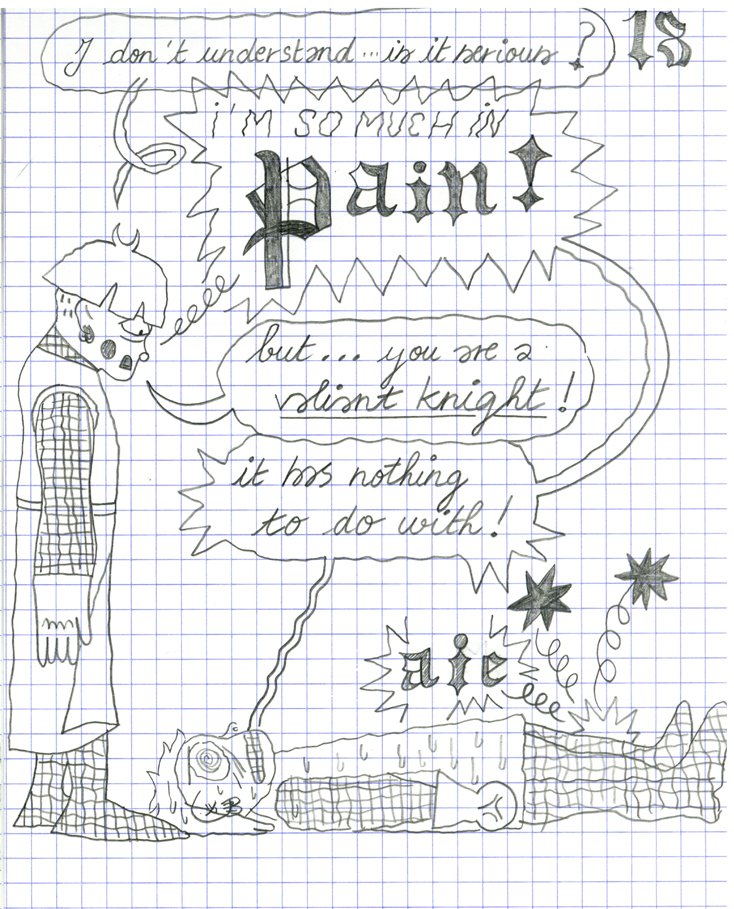 I don't understand ... is it serious ?
18
i'M SO MUCH iN
Pain!
but ... you are a
valiant knight !
it has nothing
to do with !
aie